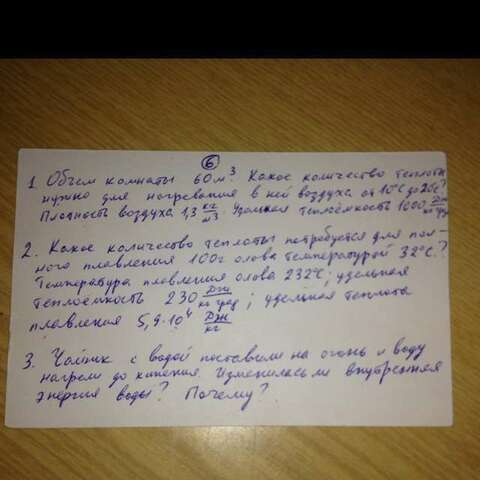 6
1. Объём комнаты 60 м³. Какое количество теплоты
нужно для нагревания в ней воздуха от 10°С до 20°С?
Плотность воздуха 1,3 кг/м³. Удельная теплоёмкость 1000 Дж/кг град
2. Какое количество теплоты потребуется для пол-
ного плавления 100г олова температурой 32°С?
Температура плавления олова 232°С; удельная
теплоёмкость 230 Дж/кг град; удельная теплота
плавления 5,9·10⁴ Дж/кг
3. Чайник с водой поставили на огонь и воду
нагрели до кипения. Изменилась ли внутренняя
энергия воды? Почему?